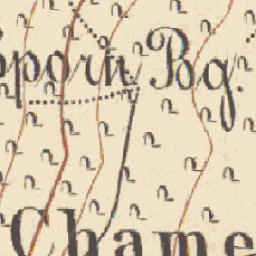 porn Bg.
Chame